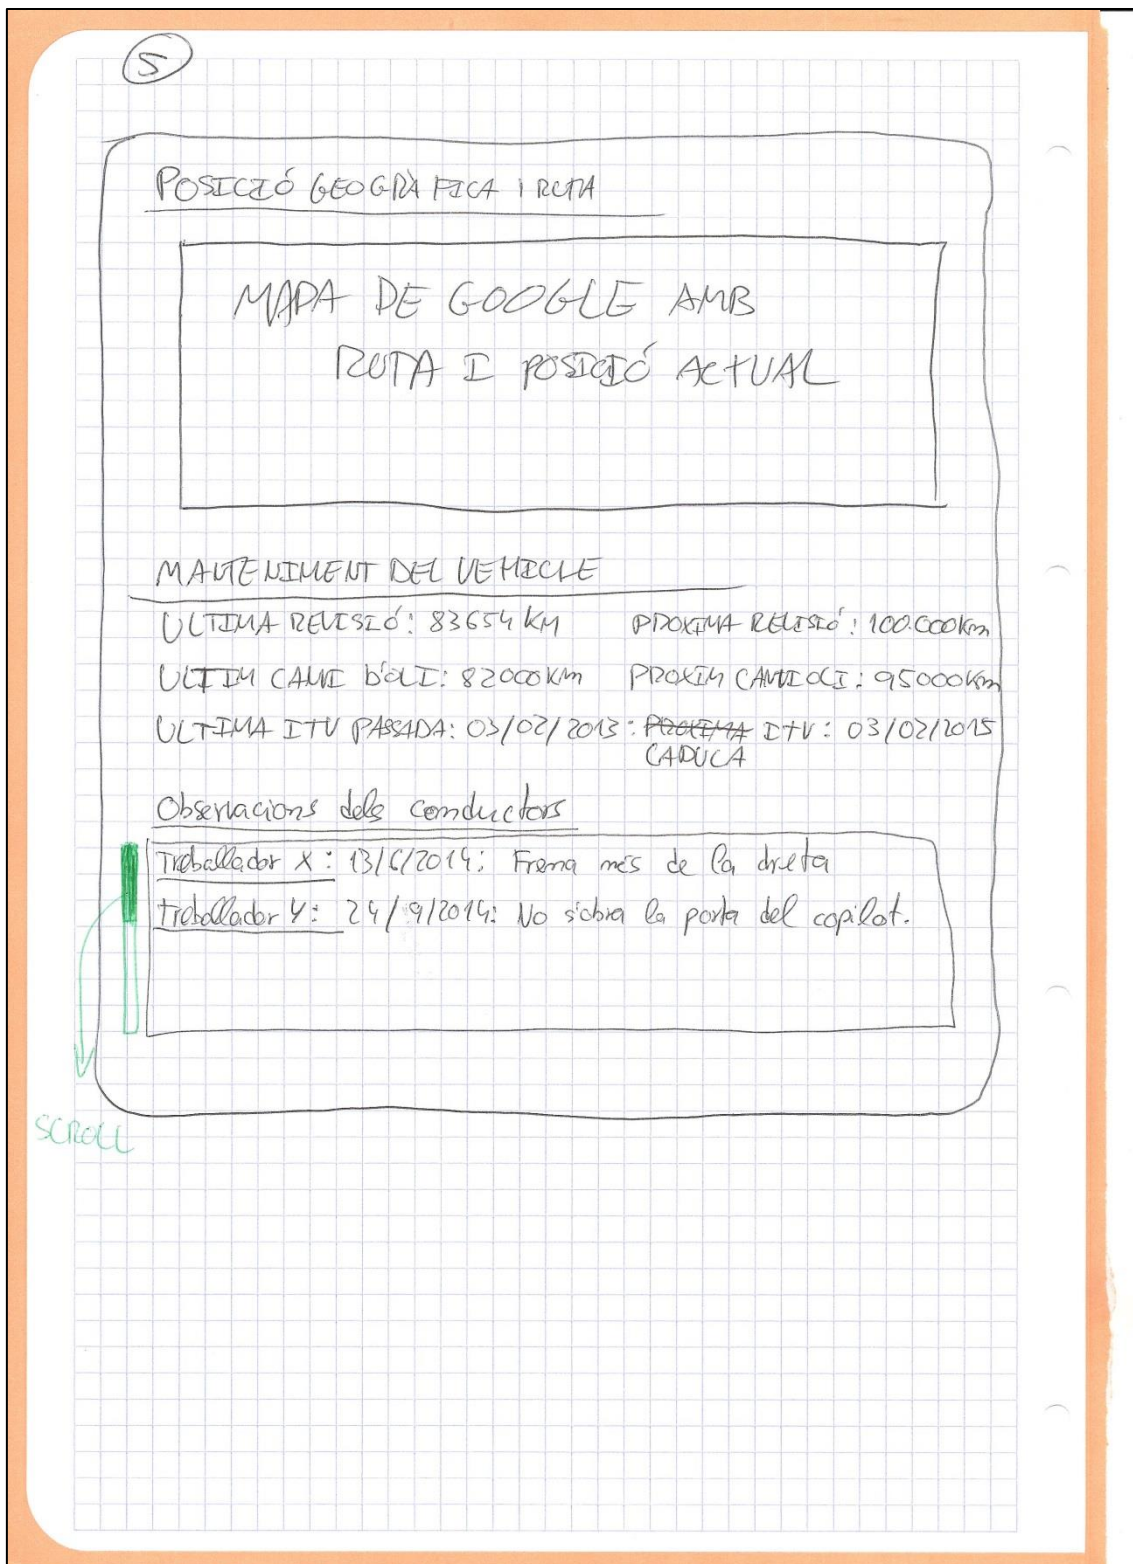 5
POSICIÓ GEOGRÀFICA I RUTA
MAPA DE GOOGLE AMB
RUTA I POSICIÓ ACTUAL
MANTENIMENT DEL VEHICLE
ULTIMA REVISIÓ: 83654 KM PROXIMA REVISIÓ: 100.000Km
ULTIM CANVI D'OLI: 82000Km PROXIM CANVI OLI: 95000Km
ULTIMA ITV PASSADA: 03/02/2013: PROXIMA ITV: 03/02/2015
CADUCA
Observacions dels conductors
Treballador X: 13/6/2014: Frena més de la dreta
Treballador Y: 24/9/2014: No s'obra la porta del copilot.
SCROLL